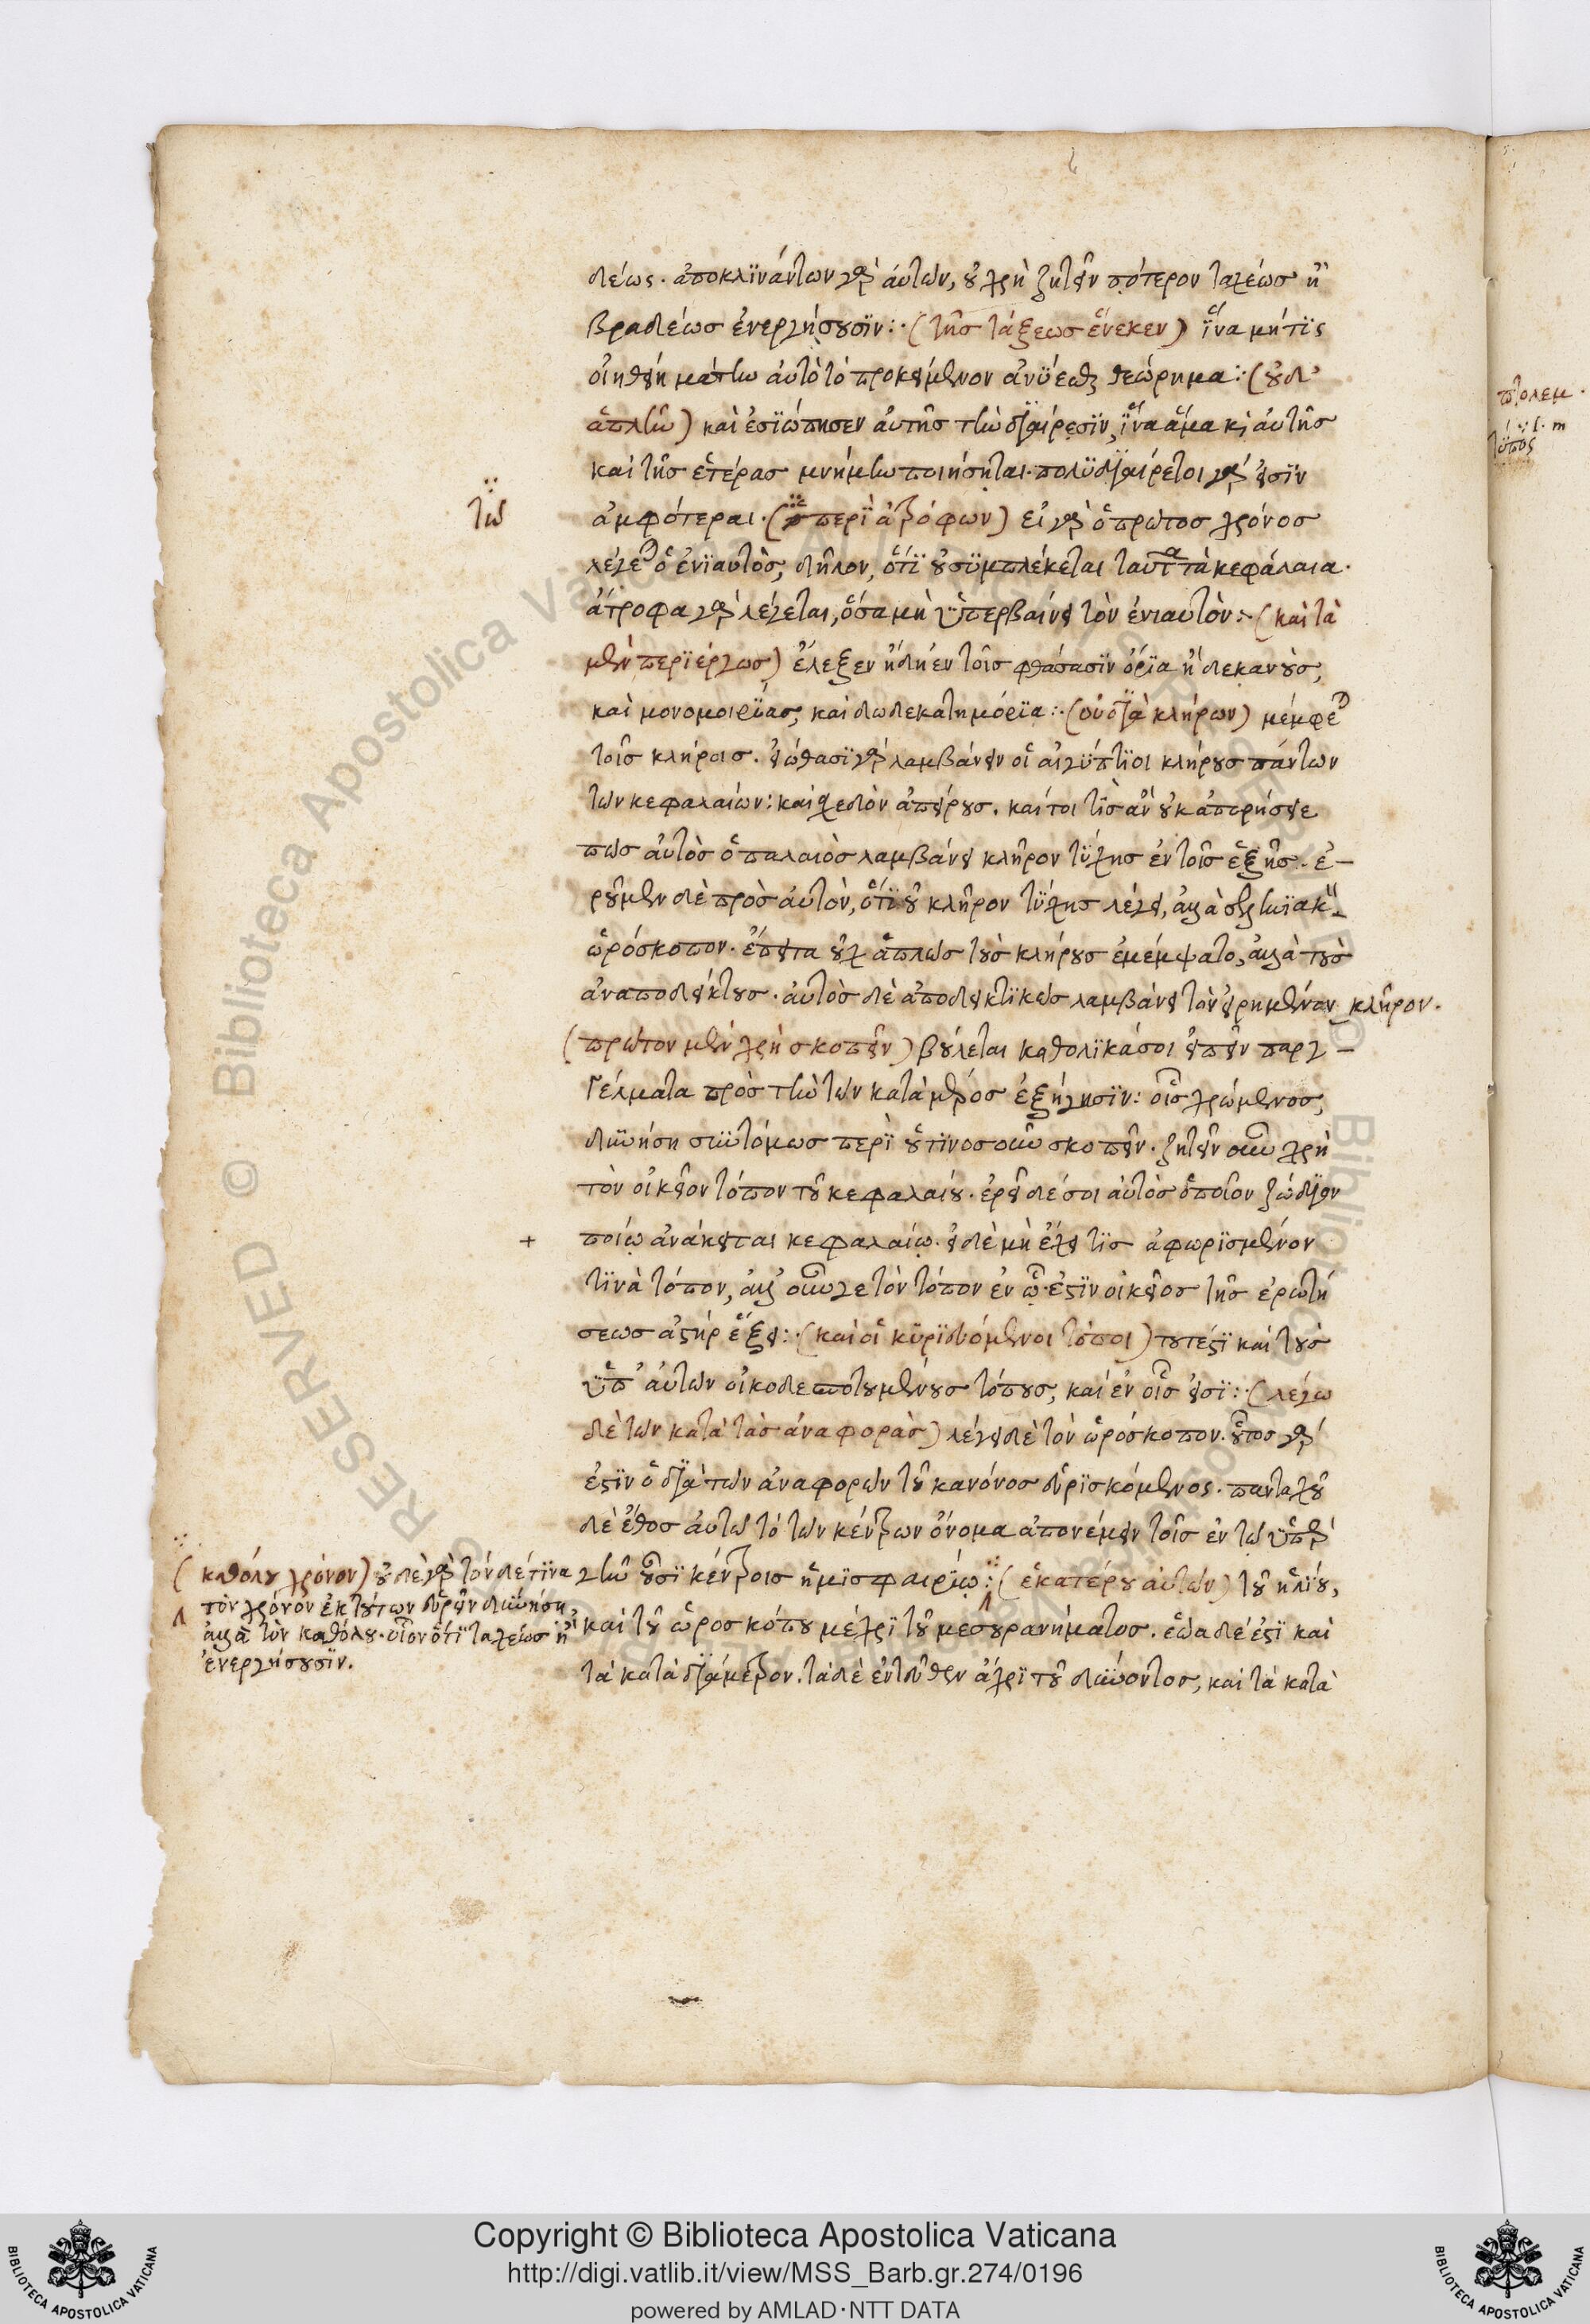 δέως. ἀποκλϊνάντων γὰρ αὐτῶν, οὐ χρὴ ζητεῖν πότερον ταχέως ἢ
βραδέως ἐνεργήσουσϊν:· (τῆς τάξεως ἕνεκεν) ἵ̈να μήτϊς
οἰηθείη μάτην αὐτὸ τὸ προκείμενον ἀνύ̈εσθαι θεώρημα:· (οὐδ'
ἁπλῆν) καὶ ἐσϊώπησεν αὐτῆς τὴν διαίρεσϊν, ἵ̈να ἅμα καὶ αὐτῆς
καὶ τῆς ἑτέρας μνήμην ποιήσηται. πολϋδιαίρετοι γάρ εἰσϊν
τῶ
ἀμφότεραι. (ὁ περῒ ἀτρόφων) εἰ γὰρ ὁ πρῶτος χρόνος
λέγεται ὁ ἐνϊαυτὸς, δῆλον, ὅτϊ οὐ σϋμπλέκεται ταῦτα τὰ κεφάλαια.
ἄτροφα γὰρ λέγεται, ὅσα μὴ ὑ̈περβαίνει τὸν ἐνιαυτὸν:· (καὶ τὰ
μὲν περϊέργως) ἔλεξεν ἤδη ἐν τοῖς φθάσασϊν ὅρϊα ἢ δεκανοὺς,
καὶ μονομοιρΐας, καὶ δωδεκατημόρϊα:· (οὐ διὰ κλήρων) μέμφεται
τοῖς κλήροις. εἰώθασϊ γὰρ λαμβάνειν οἱ αἰγΰπτϊοι κλήρους πάντων
τῶν κεφαλαίων: καὶ σχεδὸν ἀπείρους. καίτοι τῒς ἂν οὐκ ἀπορήσειε
πῶς αὐτὸς ὁ παλαιὸς λαμβάνει κλῆρον τΰχης ἐν τοῖς ἑξῆς. ἐ-
ροῦμεν δὲ πρὸς αὐτὸν, ὅτϊ οὐ κλῆρον τΰχης λέγει, ἀλλὰ σεληνϊακὸν
ὡρόσκοπον. ἔπειτα οὐχ ἁπλῶς τοὺς κλήρους ἐμέμψατο, ἀλλὰ τοὺς
ἀναποδείκτους. αὐτὸς δὲ ἀποδεικτϊκῶς λαμβάνει τὸν εἰρημένον κλῆρον.
(πρῶτον μὲν χρὴ σκοπεῖν) βούλεται καθολϊκά σοι εἰπεῖν παρ γ-
γέλματα πρὸς τὴν τῶν κατὰ μέρος ἐξήγησϊν: οἷς χρώμενος,
δϋνήση συντόμως περῒ οὗτϊνος οὖν σκοπεῖν. ζητεῖν οὖν χρὴ
τὸν οἰκεῖον τόπον τοῦ κεφαλαίου. ἐρεῖ δέ σοι αὐτὸς ὁποῖον ζώδϊον
+ ποίῳ ἀνάκειται κεφαλαίῳ. εἰ δὲ μὴ ἔχει τϊς ἀφωρϊσμένον
τϊνὰ τόπον, ἀλλ' οὖν γε τὸν τόπον ἐν ᾧ ἐστϊν οἰκεῖος τῆς ἐρωτή
σεως ἀστὴρ ἕξει:· (καὶ οἱ κυρϊευόμενοι τόποι) τουτέστϊ καὶ τοὺς
ὑ̈π' αὐτῶν οἰκοδεσποτουμένους τόπους, καὶ ἐν οἷς εἰσϊ:· (λέγω
δὲ τῶν κατὰ τὰς ἀναφορὰς) λέγει δὲ τὸν ὡρόσκοπον. οὗτος γάρ
ἐστϊν ὁ διὰ τῶν ἀναφορῶν τοῦ κανόνος εὑρϊσκόμενος. πανταχοῦ
δὲ ἔθος αὐτῶ τὸ τῶν κέντρων ὄνομα ἀπονέμειν τοῖς ἐν τῶ ὑ̈πὲρ
γῆν οὖσϊ κέντροις ἡμϊσφαιρΐῳ:· (ἑκατέρου αὐτῶν) τοῦ ἡλίου,
καὶ τοῦ ὡροσκόπου μέχρϊ τοῦ μεσουρανήματος. ἑῶα δέ ἐστϊ καὶ
τὰ κατὰ διάμετρον. τὰ δὲ ἐντεῦθεν ἄχρϊ τοῦ δΰνοντος, καὶ τὰ κατὰ
(καθόλου χρόνον) οὐδὲ γὰρ τὸν δέ τϊνα
τὸν χρόνον ἐκ τούτων εὑρεῖν δϋνήση,
ἀλλὰ τὸν καθόλου. οἷον ὅτϊ ταχέως ἢ
ἐνεργήσουσϊν.
πτολεμ.
τύ̈πος
Copyright © Biblioteca Apostolica Vaticana
http://digi.vatlib.it/view/MSS_Barb.gr.274/0196
powered by AMLAD·NTT DATA
BIBLIOTECA APOSTOLICA VATICANA
BIBLIOTECA APOSTOLICA VATICANA